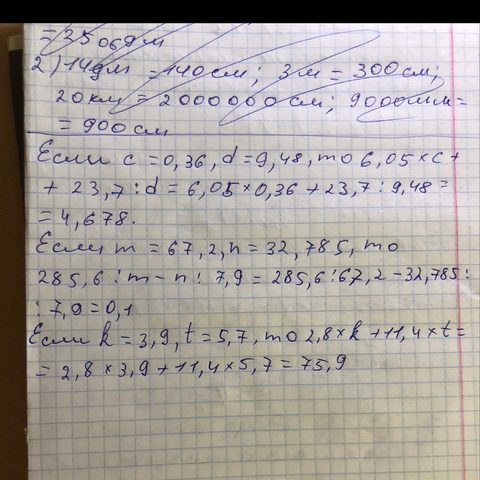 = 25 069 м
2) 14 дм = 140 см; 3 м = 300 см;
20 км = 2000000 см; 9000 мм =
= 900 см
Если c = 0,36, d = 9,48, то 6,05 × c +
+ 23,7 : d = 6,05 × 0,36 + 23,7 : 9,48 =
= 4,678.
Если m = 67,2, n = 32,785, то
285,6 : m - n : 7,9 = 285,6 : 67,2 - 32,785 :
: 7,9 = 0,1
Если k = 3,9, t = 5,7, то 2,8 × k + 11,4 × t =
= 2,8 × 3,9 + 11,4 × 5,7 = 75,9